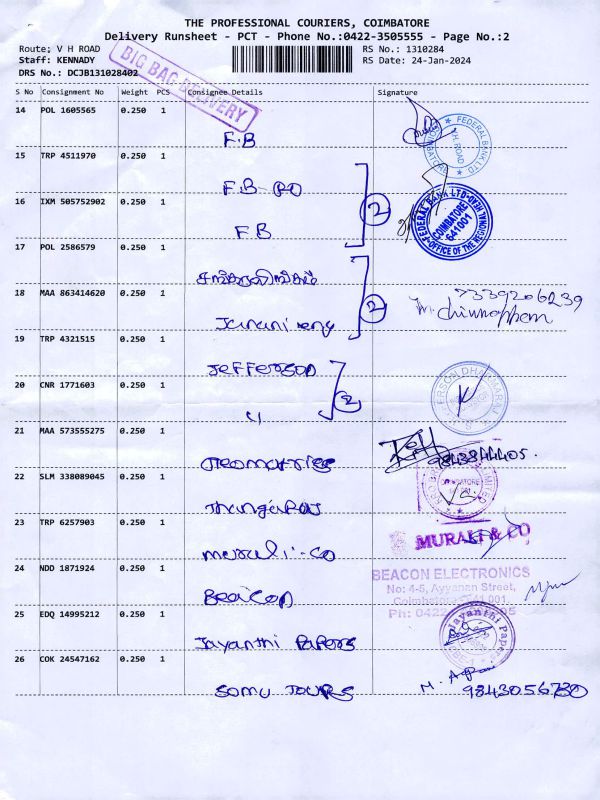 THE PROFESSIONAL COURIERS, COIMBATORE
Delivery Runsheet - PCT - Phone No.:0422-3505555 - Page No.:2
Route; V H ROAD RS No.: 1310284
Staff: KENNADY RS Date: 24-Jan-2024
DRS No.: DCJB131028402
BIG BAG DELIVERY
S No Consignment No Weight PCS Consignee Details Signature
14 POL 1605565 0.250 1 F.B
FEDERAL BANK LTD.
15 TRP 4511970 0.250 1 F.B RO
2
16 IXM 505752902 0.250 1 FB
FEDERAL BANK LTD
COIMBATORE
641001
OFFICE OF THE REGIONAL HEAD
17 POL 2586579 0.250 1
2
18 MAA 863414620 0.250 1 Janani
7339206239
19 TRP 4321515 0.250 1 Jefferson
2
20 CNR 1771603 0.250 1 "
21 MAA 573555275 0.250 1
9843844405.
22 SLM 338089045 0.250 1 Thangaraj
COIMBATORE
23 TRP 6257903 0.250 1 Murali - Co
MURALI & CO
24 NDD 1871924 0.250 1 Beacon
BEACON ELECTRONICS
No: 4-5, Ayyanan Street,
Coimbatore - 641 001.
Ph: 0422
25 EDQ 14995212 0.250 1 Jayanthi Papers
Jayanthi Papers
26 COK 24547162 0.250 1 Somu Tours
9843056730